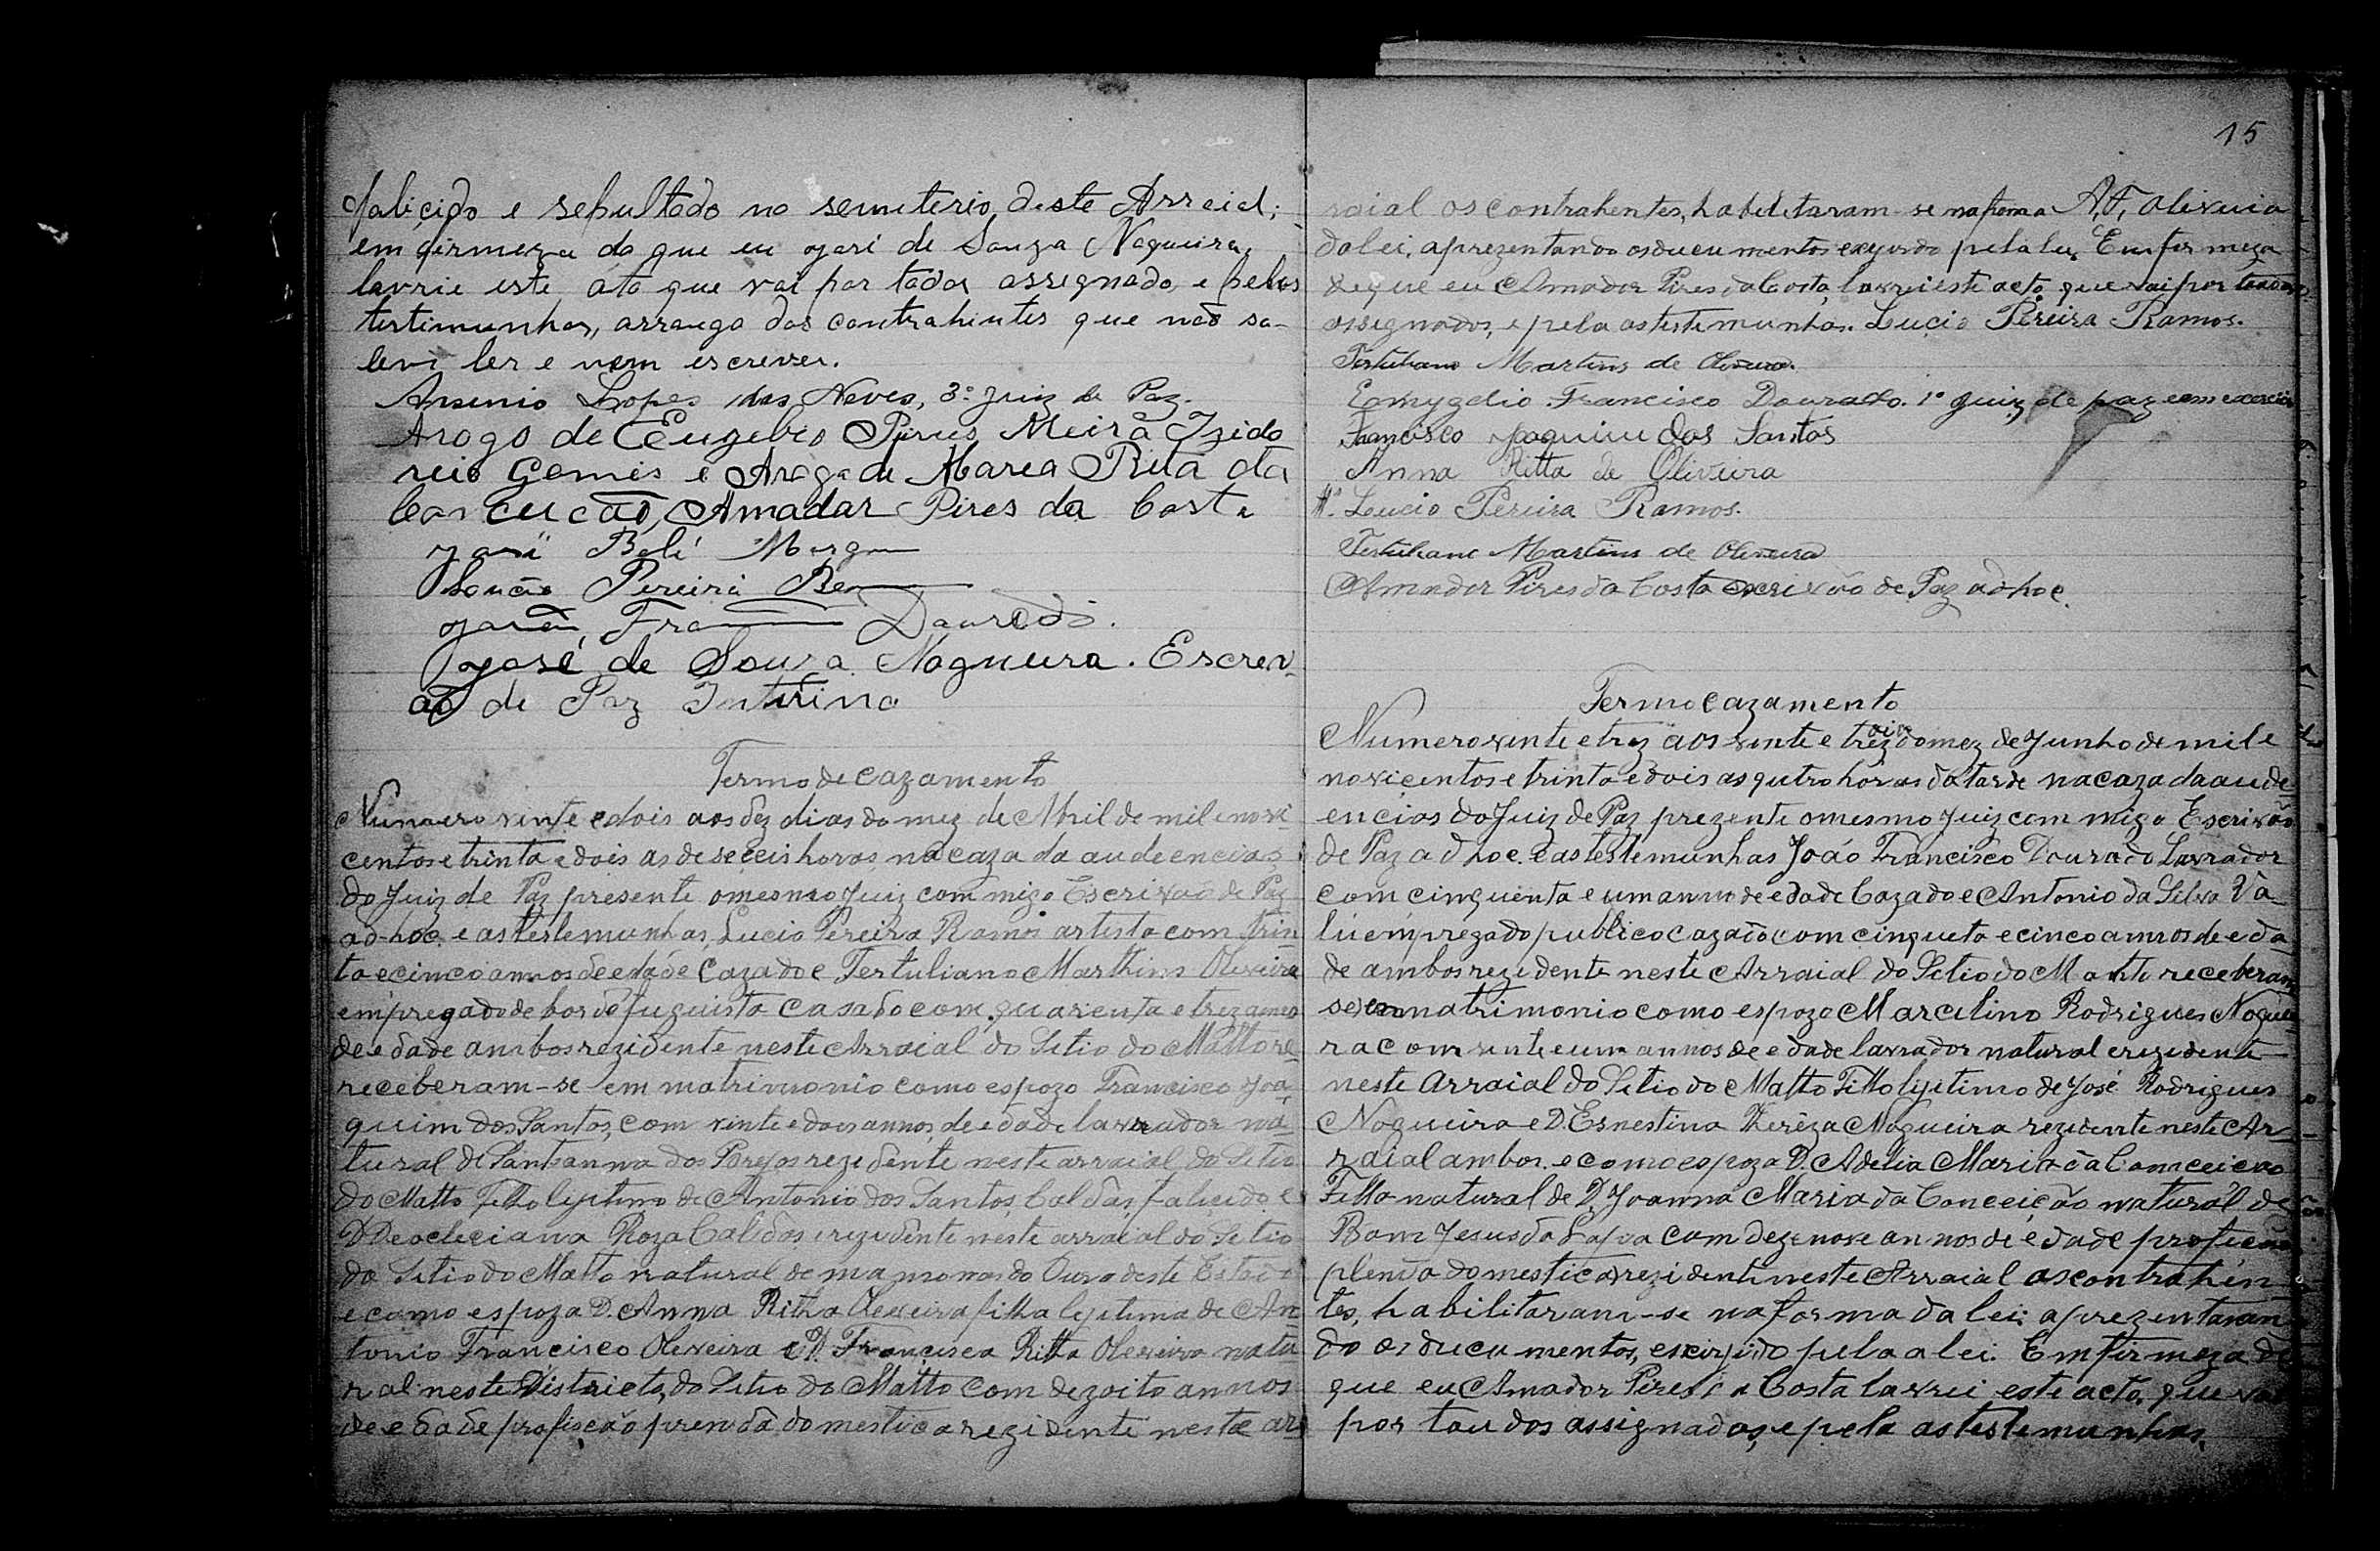 falicido e sepultado no semeterio deste Arraial;
em firmeza do que eu José de Souza Nogueira,
lavrie este ato que vai por todos assegnado, e pelas
testimunhas, arraugo dos contrahentes que não sa-
bem ler e nem escrever.
Arsenio Lopes das Neves, 3º Juiz de Paz.
Arogo de Euzebio Pires Meira Izido
rio Gomes e Arogo de Maria Rita da
Concucão, Amadar Pires da Costa
José Bolé
Pereira
Fra Dourado.
José de Souza Nogueira. Escrev-
ão de Paz Intirino
Termo de cazamento
Numero vinte e dois aos dez dias do mez de Abril de mil e novi-
centos e trinta e dois as deseceis horas na caza da audeencias
do Juiz de Paz presente o mesmo Juiz commigo Escrivão de Paz
ad-hoc. e as testemunhas, Lucio Pereira Ramos artista com trin-
ta e cinco annos de edade Cazado e Tertuliano Marthins Oliveira
empregado de bordo fuguista casado com quarenta e trez annos
de edade ambos rezidente neste Arraial do Setio do Matto re-
receberam-se em matrimonio como espozo Francisco Joa-
quim dos Santos, com vinte e dois annos, de edade lavrador na-
tural de Santanna dos Brejos rezidente neste arraial do Setio
do Matto Filho lejitimo de Antonio dos Santos Caldas falicido e
D. Deocleciana Roza Caldas, rezidente neste arraial do Setio
do Setio do Matto natural de mamonas do Ouro deste Estado
e como espoza D. Anna Ritha Olexeira filha lejitima de An-
tonio Francisco Olexeira e D. Francisca Ritta Olexeira natu-
ral neste Districto, do Setio do Matto com dezoito annos
de edade profiscão prenda domestica rezidente neste ar-
15
raial os contrahentes, habelitaram-se na forma A, F, Oliveira
da lei, aprezentando os ducumentos exegido pela lei. Em fir meza
de que eu Amador Pires da Costa, lavrei este acto que vai por todos
assegnados, e pela as testemunhas. Lucio Pereira Ramos.
Tertuliano Martins de Oliveira.
Eomygdio Francisco Dourado. 1º Juiz de paz em exercicio
Francisco Joaquim dos Santos
Anna Ritta de Oliveira
Loucio Pereira Ramos.
Tertuliano Martins de Oliveira
Amador Pires da Costa escrivão de Paz ad-hoc.
Termo cazamento
Numero vinte e trez aos vinte e trez dias do mez de Junho de mil e
novicentos e trinta e dois as qutro horas da tarde na caza da aude-
encias do Juiz de Paz prezente o mesmo Juiz com migo Escrivão
de Paz ad hoc. e as testemunhas João Francisco Dourado Lavrador
com cinquenta e um anno de edade Cazado e Antonio da Silva Va-
lú empregado publico cazado com cinqueta e cinco annos de eda-
de ambos rezidente neste Arraial do Setio do Matto receberam
se em matrimonio como espozo Marcelino Rodrigues Noguei-
ra com vinte e um annos de edade lavrador natural e rezidente
neste Arraial do Setio do Matto Filho lejitimo de José Rodrigues
Nogueira e D. Esnestina Thereza Nogueira rezidente neste Ar-
raial ambos. e como espoza D. Adelia Maria da Comceicao
Filha natural de D. Joanna Maria da Conceição natural de
Bom Jesus da Lapa com dezenove annos de edade profiçao
plenda domestica rezidente neste Arraial as contrahen-
tes, habilitaram-se na forma da lei: aprezentaram-
do os ducumentos, exirjido pela a lei. Em firmeza de
que eu Amador Pires da Costa lavrei este acto, que vai
por toudos assignados, e pela as testemunhas.